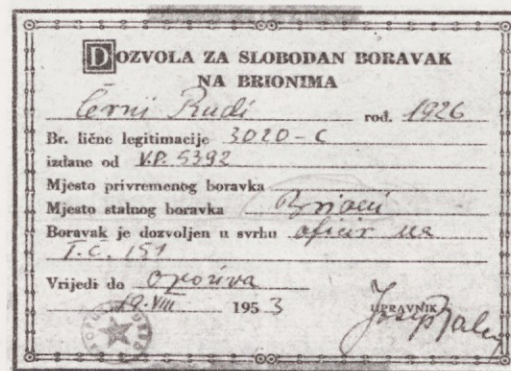 DOZVOLA ZA SLOBODAN BORAVAK
NA BRIONIMA
Černi Rudi rod. 1926
Br. lične legitimacije 3020-C
izdane od V.P. 5392
Mjesto privremenog boravka
Mjesto stalnog boravka Brioni
Boravak je dozvoljen u svrhu oficir na
T.Č. 151
Vrijedi do opoziva
19. VIII 1953
UPRAVNIK
Josip